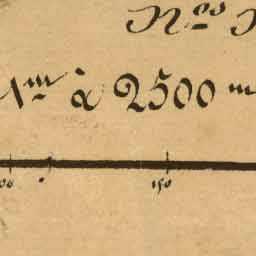 Nos
1m à 2500 m
00 150